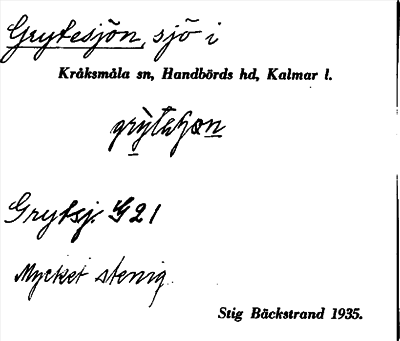 Grytesjön, sjö i
Kråksmåla sn, Handbörds hd, Kalmar l.
Grytsj. G21
Mycket stenig
Stig Bäckstrand 1935.